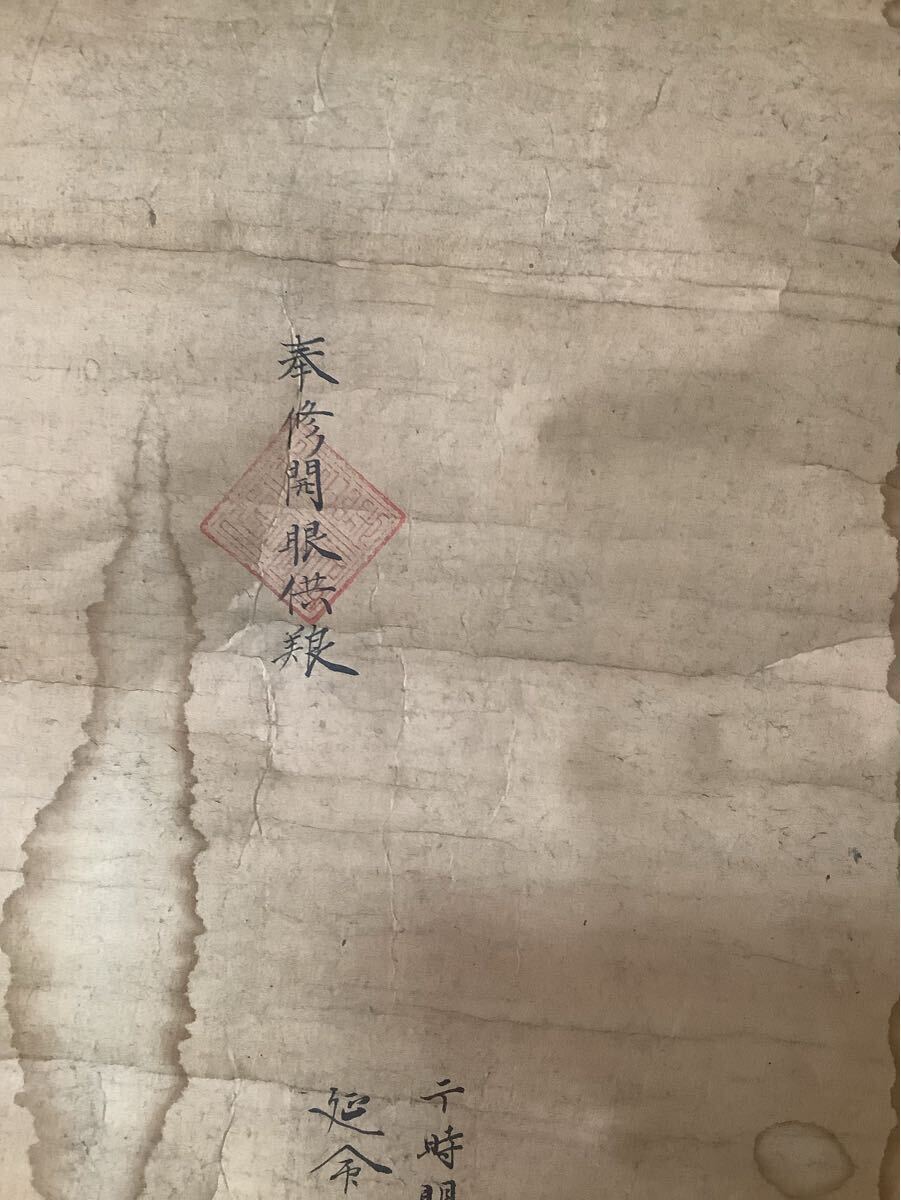 奉修開眼供養
于時明
延命